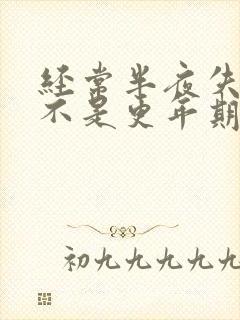 经常半夜失
不是更年期
初九九九九九